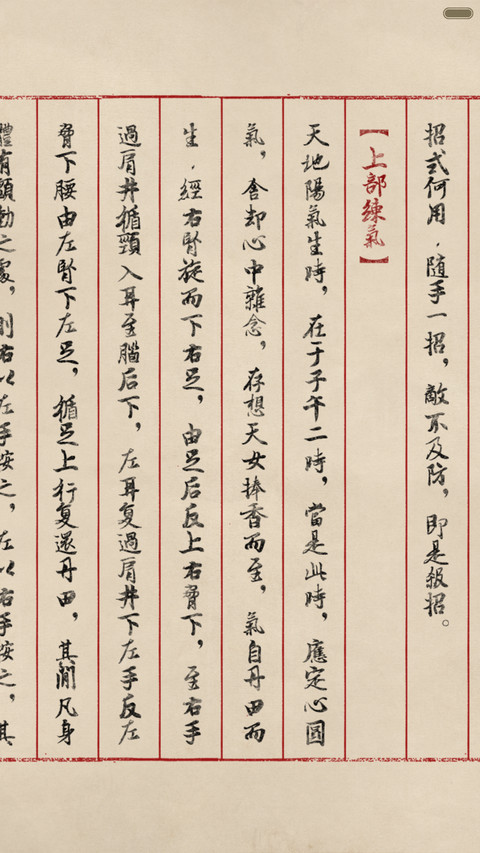 招式何用，隨手一招，敵不及防，即是殺招。
【上部練氣】
天地陽氣生時，在于子午二時，當是此時，應定心圓
氣，舍却心中雜念，存想天女捧香而至，氣自丹田而
生，經右腎旋而下右足，由足后反上右脅下，至右手
過肩井循頸入耳至腦后下，左耳复過肩井下左手反左
脅下腰由左腎下左足，循足上行复還丹田，其間凡身
體有顫動之處，則右以左手按之，左以右手按之，其